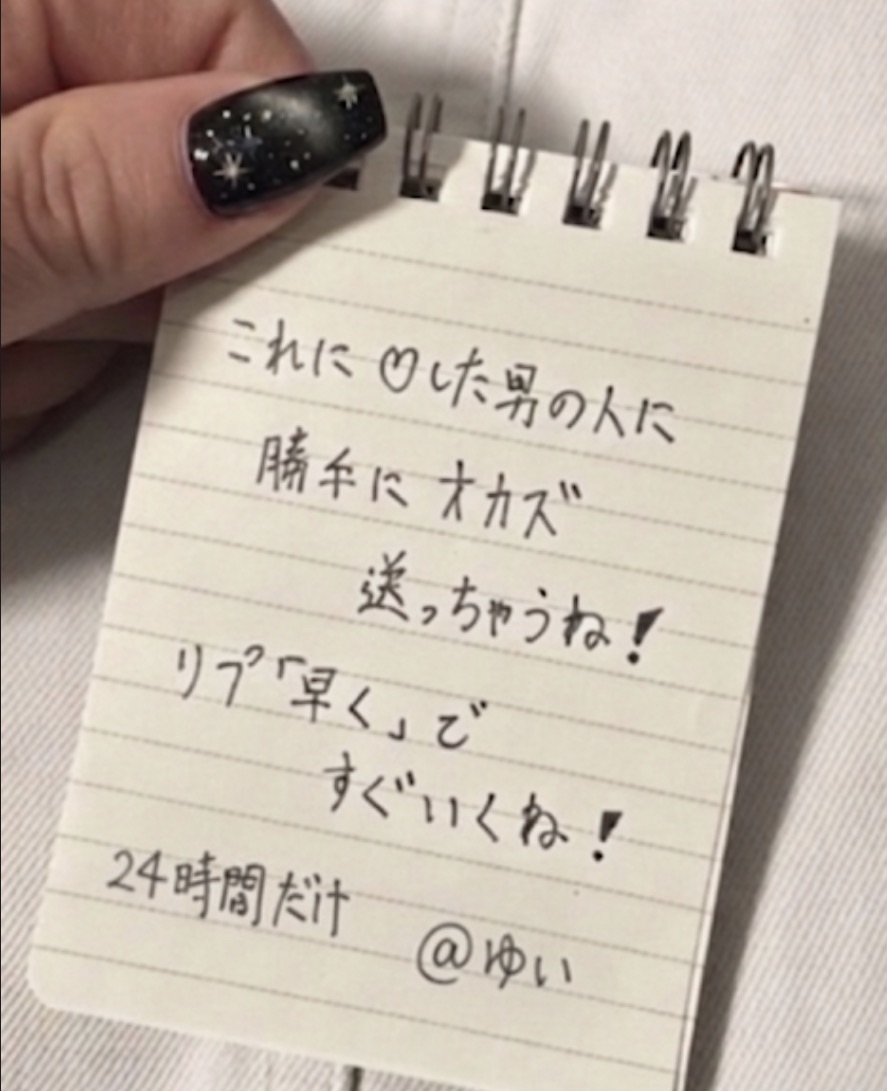 これに♡した男の人に
勝手にオカズ
送っちゃうね!
リプ「早く」で
すぐいくね!
24時間だけ @ゆい